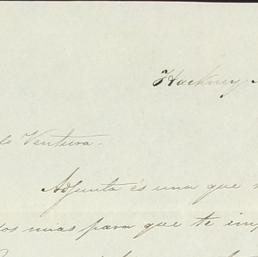 Hackney
Ventura.
Adjunta és una que
mias para que te